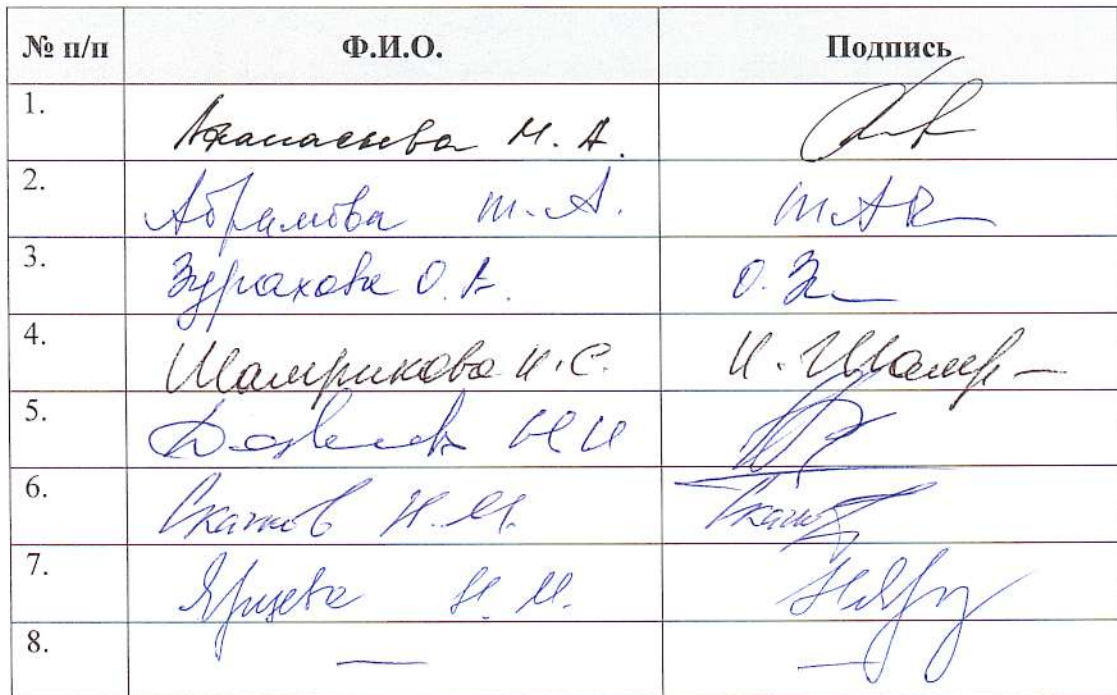 № п/п Ф.И.О. Подпись
1. Афанасьева М. А.
2. Абрамова т. А.
3. Зурахова О. А. О. З
4. Шамрикова И. С. И. Шамр
5. И И
6. Скачков Н. М. Скачков
7. Ярцева Н. М. НЯру
8. — —